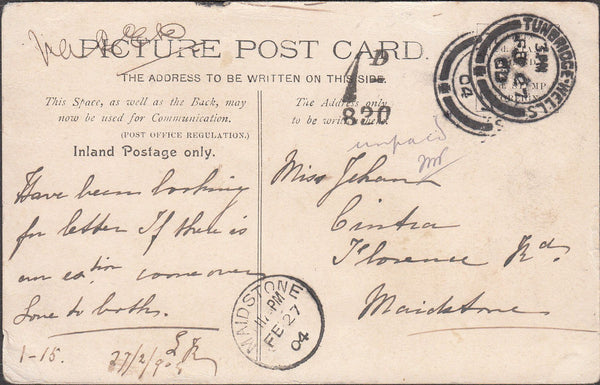 PICTURE POST CARD.
THE ADDRESS TO BE WRITTEN ON THIS SIDE.
This Space, as well as the Back, may
now be used for Communication.
(POST OFFICE REGULATION.)
Inland Postage only.
The Address only
to be written here.
1D
820
TUNBRIDGE-WELLS
3 PM
04
unpaid
Have been looking
for letter If there is
over
Love to both.
1-15.
27/2/
Miss
Cintra
Florence Rd.
Maidstone
MAIDSTONE
11 PM
FE 27
04